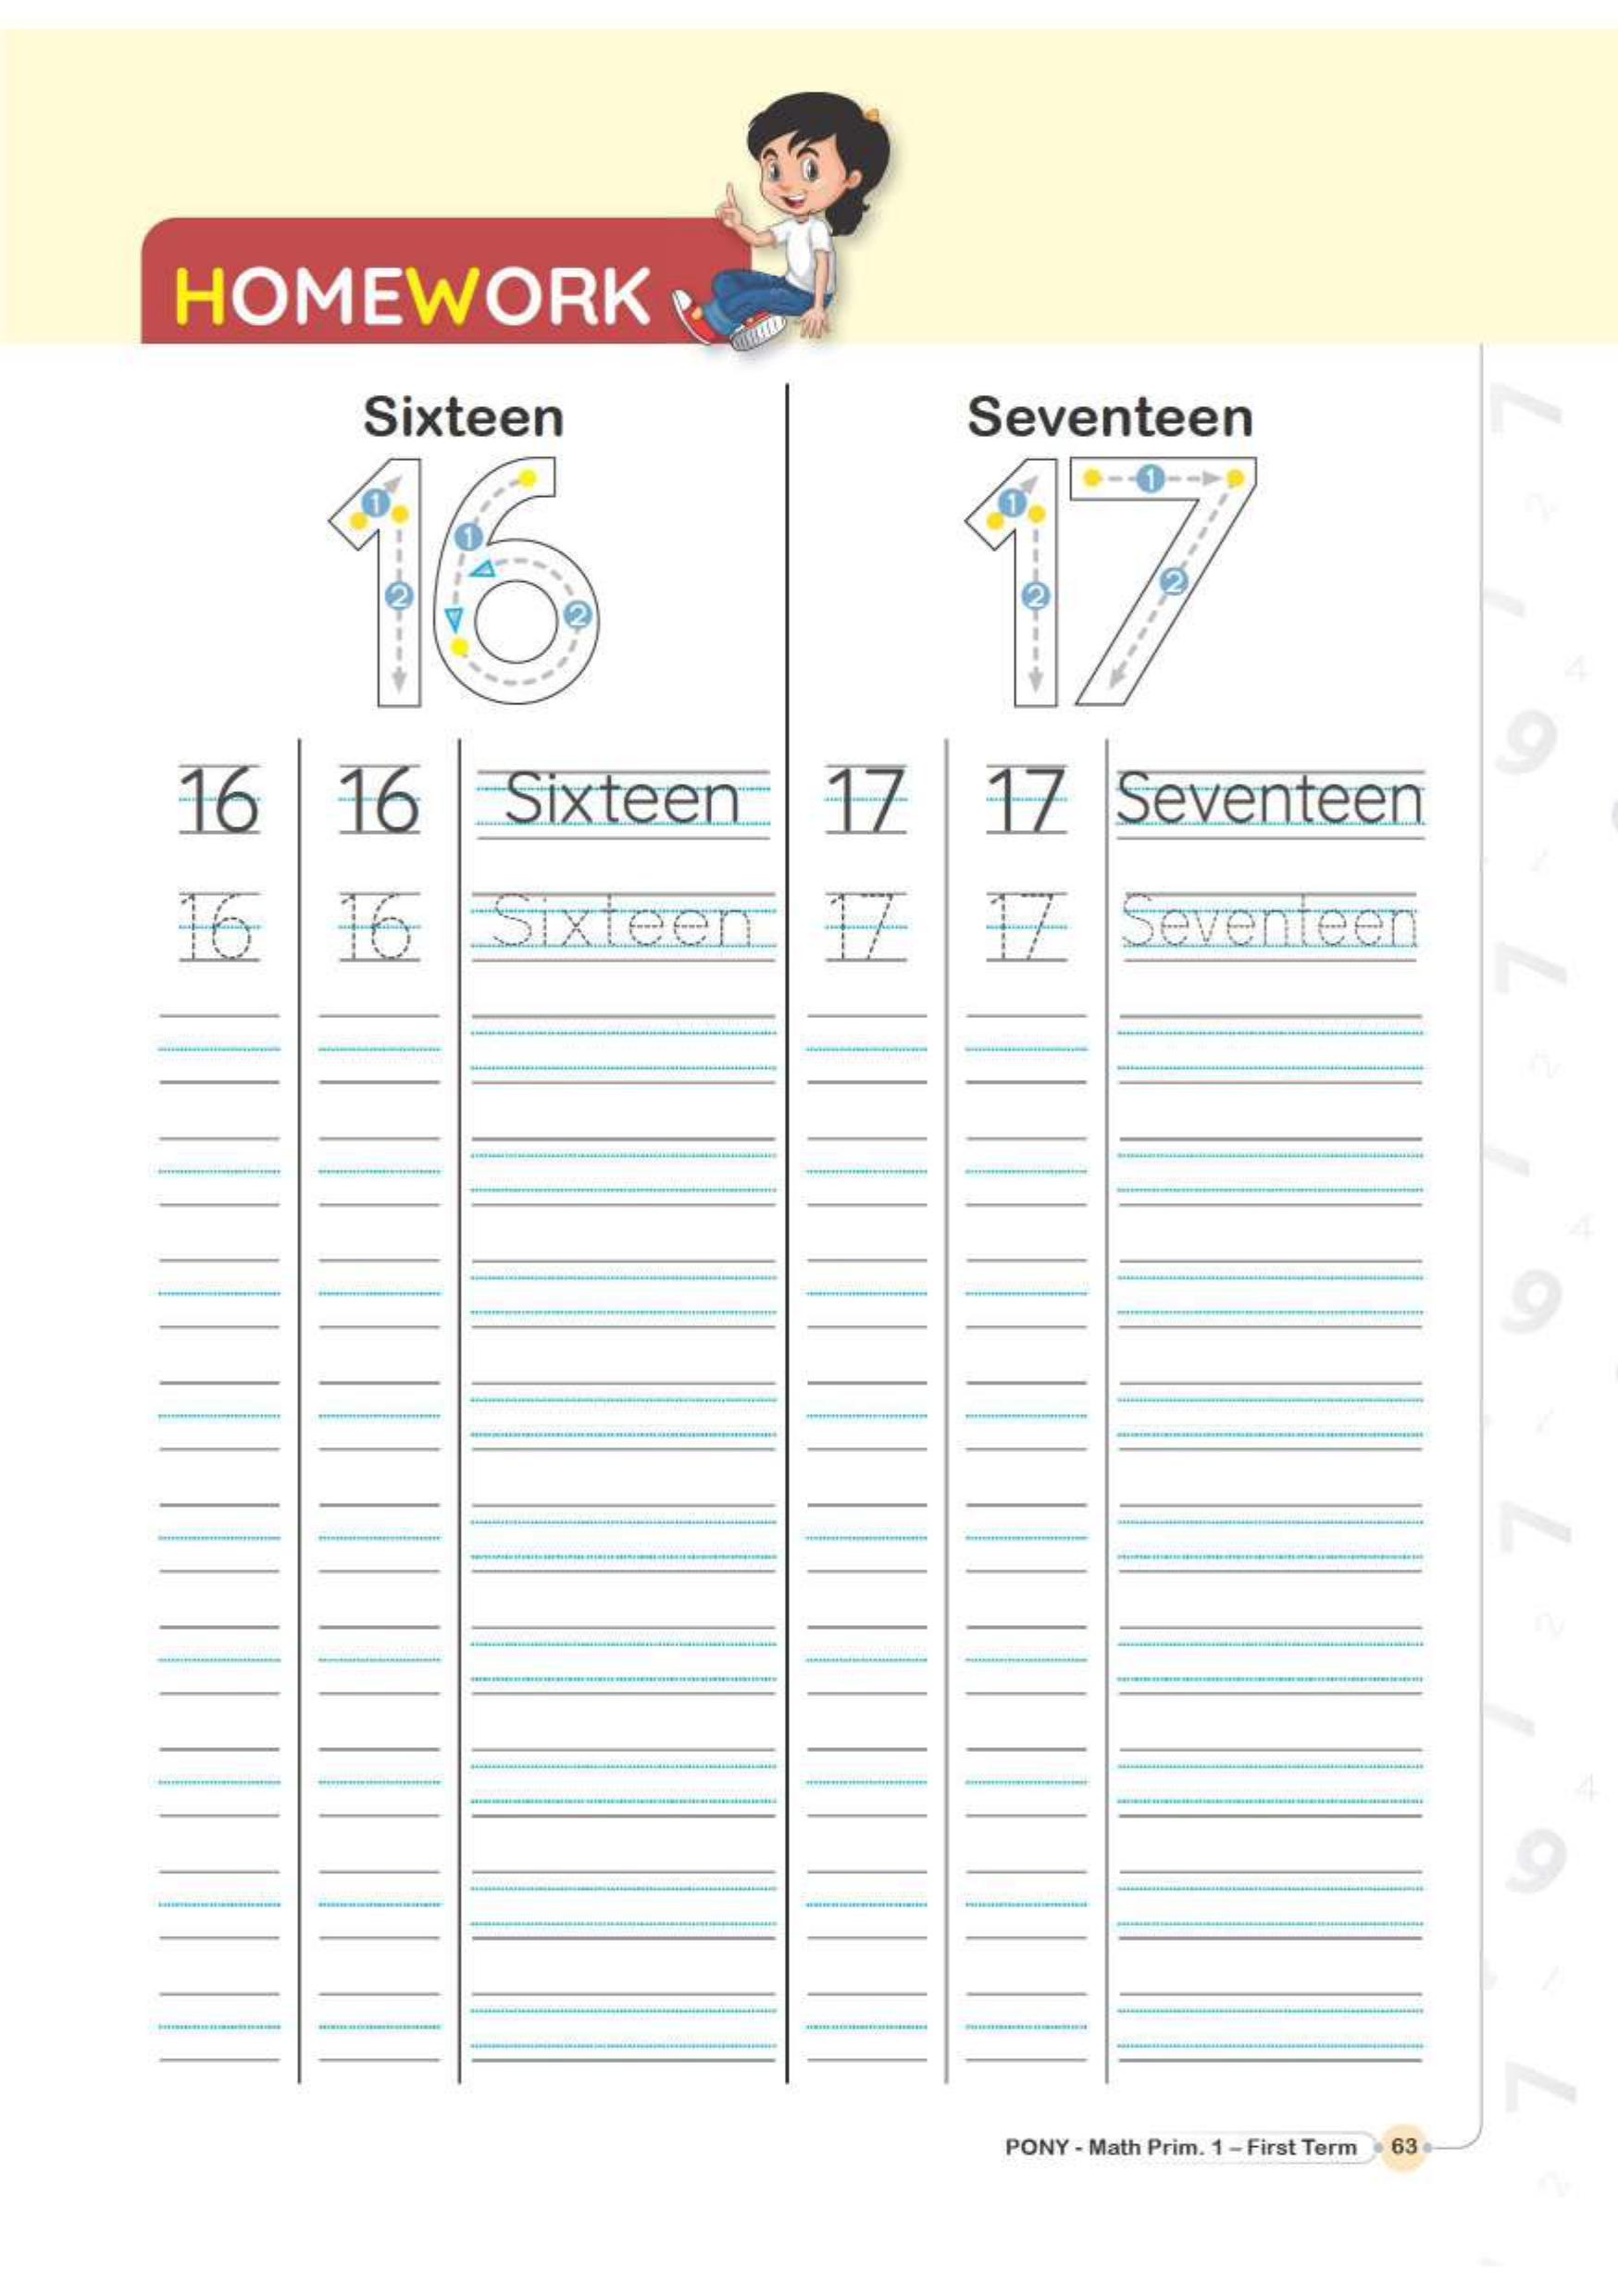 HOMEWORK
Sixteen Seventeen
1 1 1 1
2 2 2 2
16 16 Sixteen 17 17 Seventeen
16 16 Sixteen 17 17 Seventeen
PONY - Math Prim. 1 – First Term 63